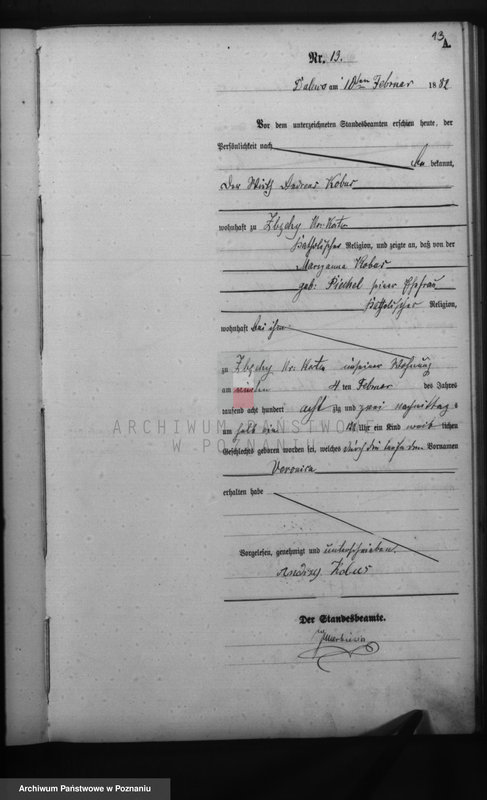 13
A.
Nr. 13.
Dalewo am 10ten Februar 1882
Vor dem unterzeichneten Standesbeamten erschien heute, der
Persönlichkeit nach
bekannt,
Der Wirth Andreas Kobus
wohnhaft zu Zbęchy Kr. Kosten
katholischer Religion, und zeigte an, daß von der
Maryanna Kobus
geb. seiner Ehefrau
katholischer Religion,
wohnhaft bei ihm
zu Zbęchy Kr. Kosten in seiner Wohnung
am ten Februar des Jahres
tausend acht hundert achtzig und zwei Nachmittag s
um halb Uhr ein Kind weib lichen
Geschlechts geboren worden sei, welches durch die Taufe den Vornamen
Veronica
erhalten habe
Vorgelesen, genehmigt und unterschrieben.
Andrzy Kobus
Der Standesbeamte.
ARCHIWUM PAŃSTWOWE
W POZNANIU
Archiwum Państwowe w Poznaniu